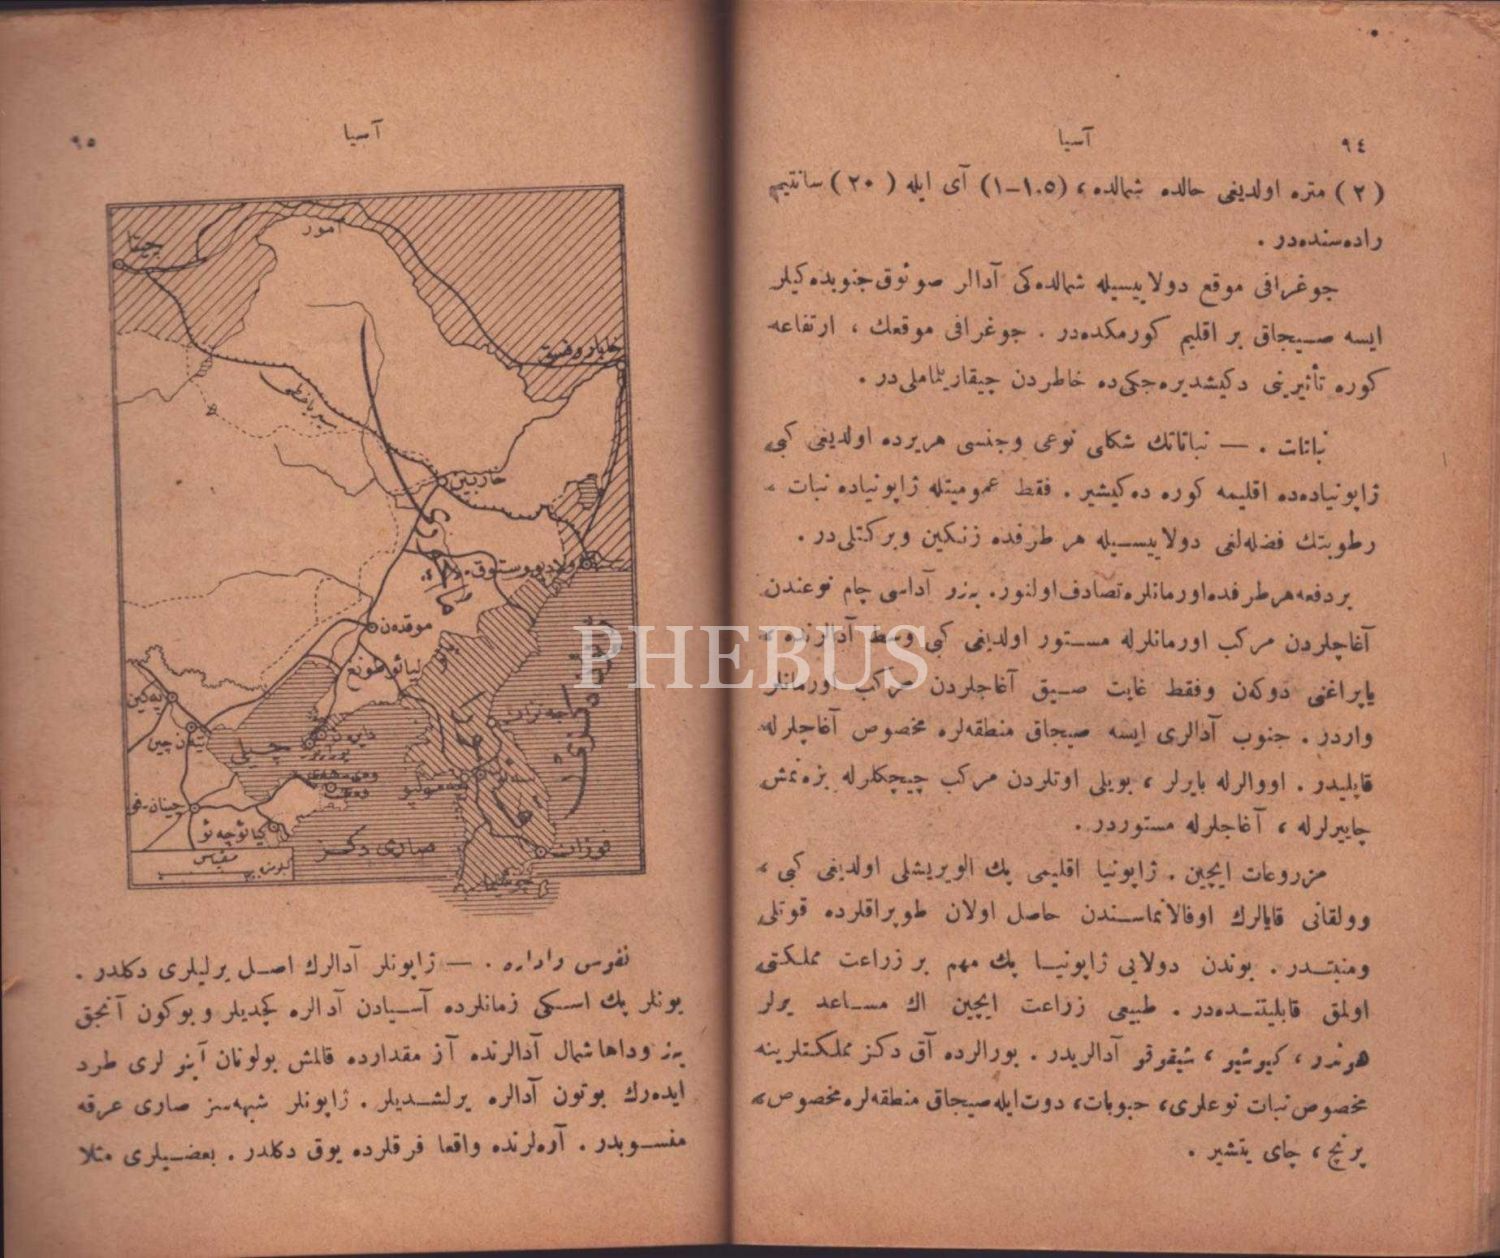 ٩٤
آسیا
(٢) متره اولدیغی حالده شمالده، (١-١.٥) آی ایله (٢٠) سانتیم
راده‌سنده‌در.
جوغرافی موقع دولاییسیله شمالده‌کی آدالر صوئوق جنوبده‌کیلر
ایسه صیجاق بر اقلیم کورمکده‌در. جوغرافی موقعك، ارتفاعه
کوره تأثیرینی دکیشدیره‌جکی‌ده خاطردن چیقاریلماملی‌در.
نباتات. — نباتاتك شکلی نوعی وجنسی هریرده اولدیغی کبی
ژاپونیاده‌ده اقلیمه کوره ده‌کیشیر. فقط عمومیتله ژاپونیاده نبات
رطوبتك فضله‌لغی دولاییسیله هر طرفده زنکین وبرکتلی‌در.
بردفعه هر طرفده اورمانلره تصادف اولنور. یه‌زو آداسی چام نوعندن
آغاچلردن مرکب اورمانلرله مستور اولدیغی کبی وسط آدالرنده
یاپراغنی دوکه‌ن وفقط غایت صیق آغاجلردن مرکب اورمانلر
واردر. جنوب آدالری ایسه صیجاق منطقه‌لره مخصوص آغاجلرله
قاپلیدر. اووالرله بایرلر، بویلی اوتلردن مرکب چیچکلرله بزه‌نمش
چایرلرله، آغاجلرله مستوردر.
مزروعات ایچین. ژاپونیا اقلیمی پك الویریشلی اولدیغی کبی،
وولقانی قایالرك اوفالانماسندن حاصل اولان طوپراقلرده قوتلی
ومنبتدر. بوندن دولایی ژاپونیا پك مهم بر زراعت مملکتی
اولمق قابلیتنده‌در. طبیعی زراعت ایچین اك مساعد یرلر
هوندو، کیوشیو، شیقوقو آدالریدر. بورالرده آق دکز مملکتلرینه
مخصوص نبات نوعلری، حبوبات، دوت ایله صیجاق منطقه‌لره مخصوص
پرنچ، چای یتشیر.
آسیا
٩٥
آمور
چیتا
خاباروفسق
سیبریا خطی
خاربین
مانچوری
ولادیووستوق
موقده‌ن
لیائوطونغ
یالو
په‌کین
تیه‌ن چین
چیلی
چینان-فو
کیائوچه‌ئو
صاری دکز
فوزان
ژاپون دکزی
سه‌ئول
چه‌مولپو
مقیاس
PHEBUS
نفوس واداره. — ژاپونلر آدالرك اصل یرلیلری دکلدر.
بونلر پك اسکی زمانلرده آسیادن آدالره کچدیلر وبوکون آنجق
یه‌زو وداها شمال آدالرنده آز مقدارده قالمش بولونان آینو لری طرد
ایده‌رك بوتون آدالره یرلشدیلر. ژاپونلر شبهه‌سز صاری عرقه
منسوبدر. آره‌لرنده واقعا فرقلرده یوق دکلدر. بعضیلری مثلا